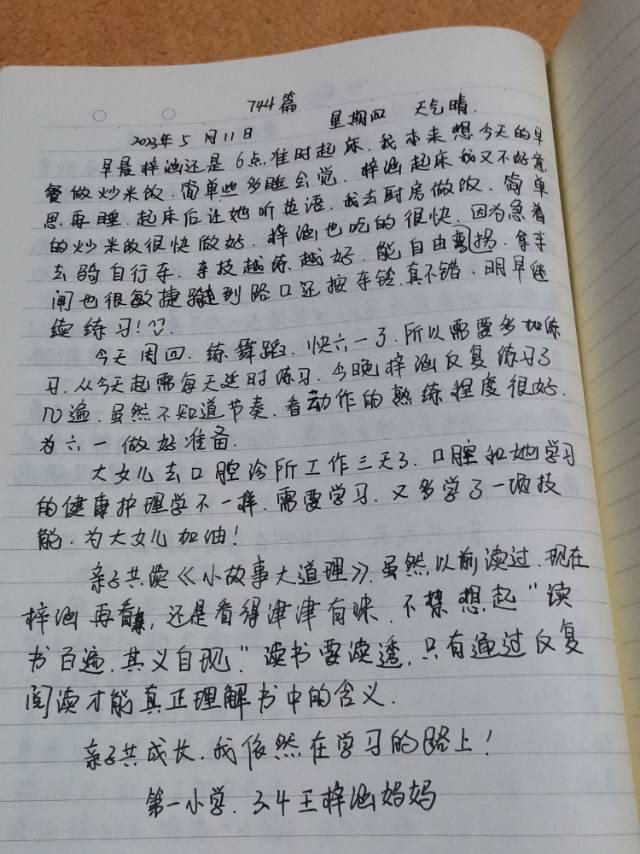 744篇
2023年5月11日 星期四 天气晴.
早晨梓涵还是6点准时起床.我本来想今天的早
餐做炒米饭.简单些多睡会觉.梓涵起床我又不好意
思再睡.起床后让她听英语.我去厨房做饭.简单
的炒米饭很快做好.梓涵也吃的很快.因为急着
去骑自行车.车技越练越好.能自由拐.拿车
闸也很敏捷骑到路口还按车铃.真不错.明早继
续练习!
今天周四.练舞蹈.快六一了.所以需要多加练
习.从今天起需每天延时练习.今晚梓涵反复练习了
几遍.虽然不知道节奏.看动作的熟练程度很好.
为六一做好准备.
大女儿去口腔诊所工作三天了.口腔和她学习
的健康护理学不一样.需要学习.又多学了一项技
能.为大女儿加油!
亲子共读《小故事大道理》.虽然以前读过.现在
梓涵再看,还是看得津津有味.不禁想起“读
书百遍.其义自现.”读书要读透,只有通过反复
阅读才能真正理解书中的含义.
亲子共成长.我依然在学习的路上!
第一小学.3.4王梓涵妈妈